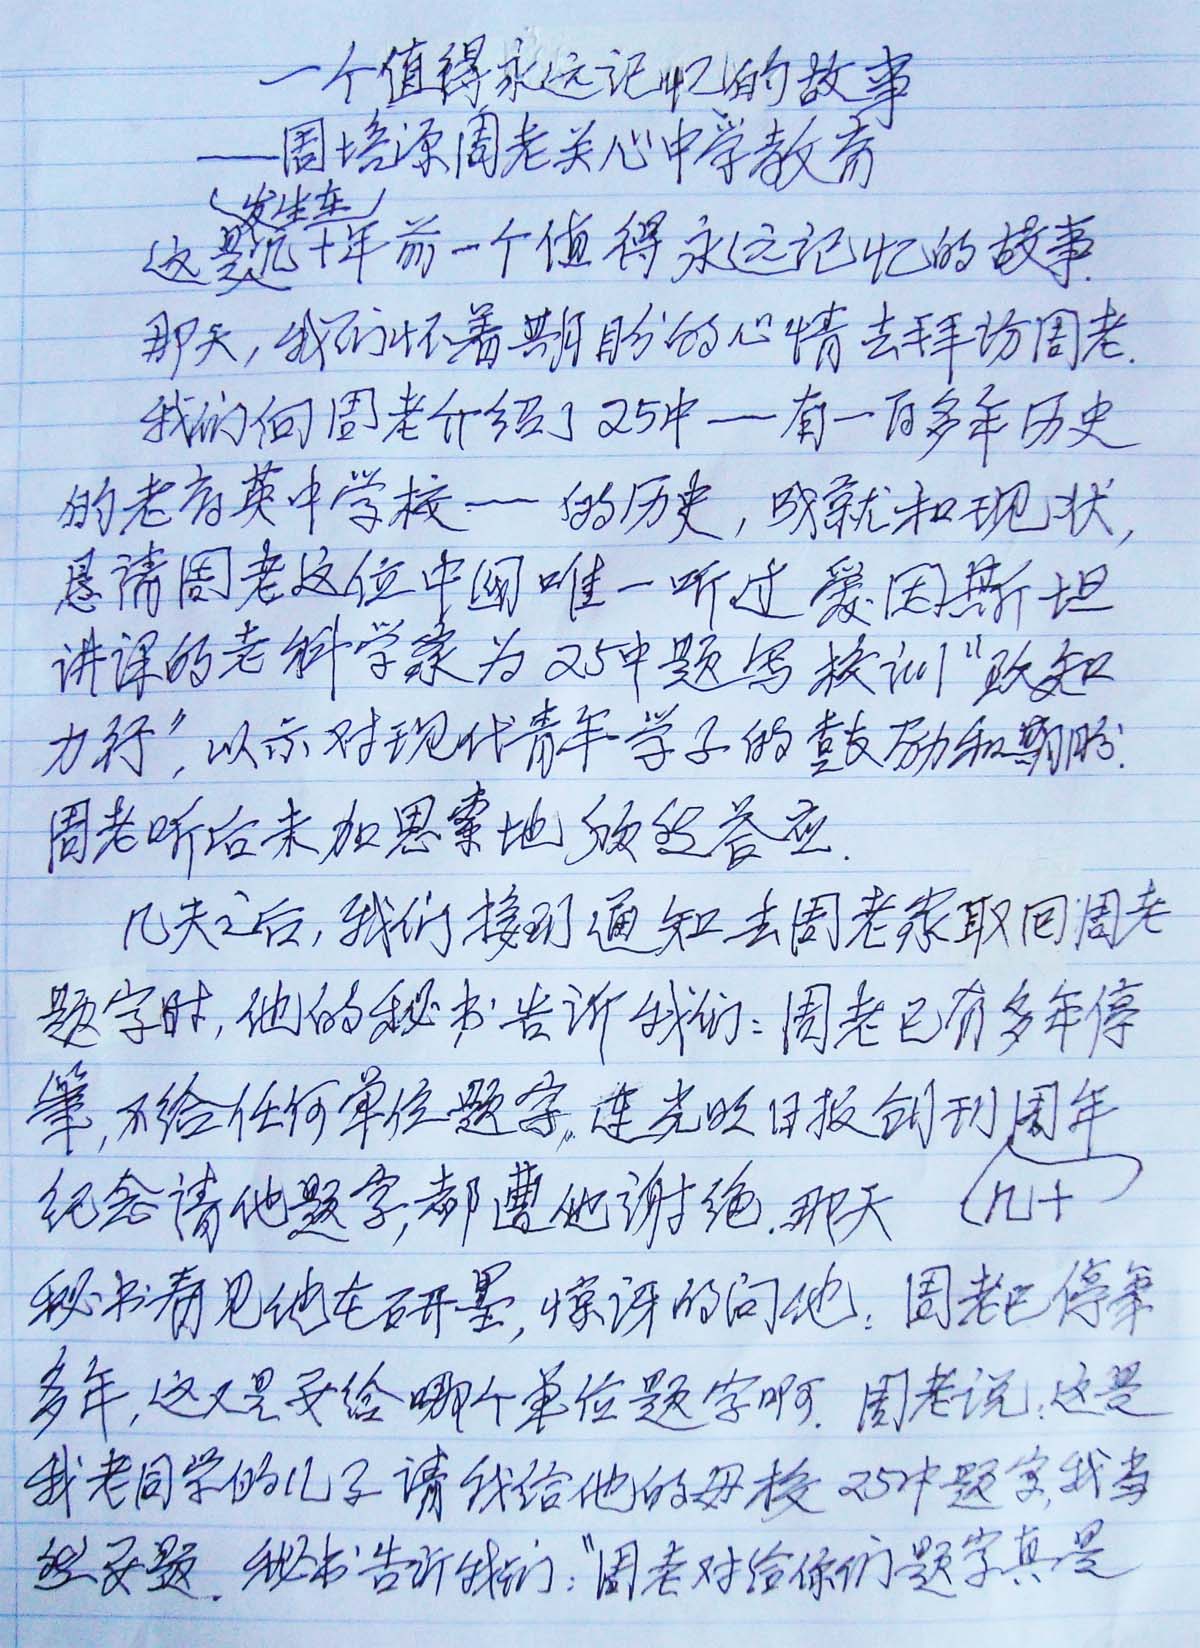 一个值得永远记忆的故事
——周培源周老关心中学教育
(发生在)
这是几十年前一个值得永远记忆的故事.
那天,我们怀着期盼的心情去拜访周老.
我们向周老介绍了25中——有一百多年历史
的老育英中学校——的历史,成就和现状,
恳请周老这位中国唯一听过爱因斯坦
讲课的老科学家为25中题写校训“致知
力行”,以示对现代青年学子的鼓励和期盼.
周老听后未加思索地颔然答应.
几天之后,我们接到通知去周老家取回周老
题字时,他的秘书告诉我们:周老已有多年停
笔,不给任何单位题字,连光明日报创刊周年
纪念请他题字,都遭他谢绝.那天 (几十
秘书看见他在研墨,惊讶的问他:周老已停笔
多年,这又是要给哪个单位题字啊.周老说:这是
我老同学的儿子请我给他的母校25中题字,我当
然要题.秘书告诉我们:“周老对给你们题字真是